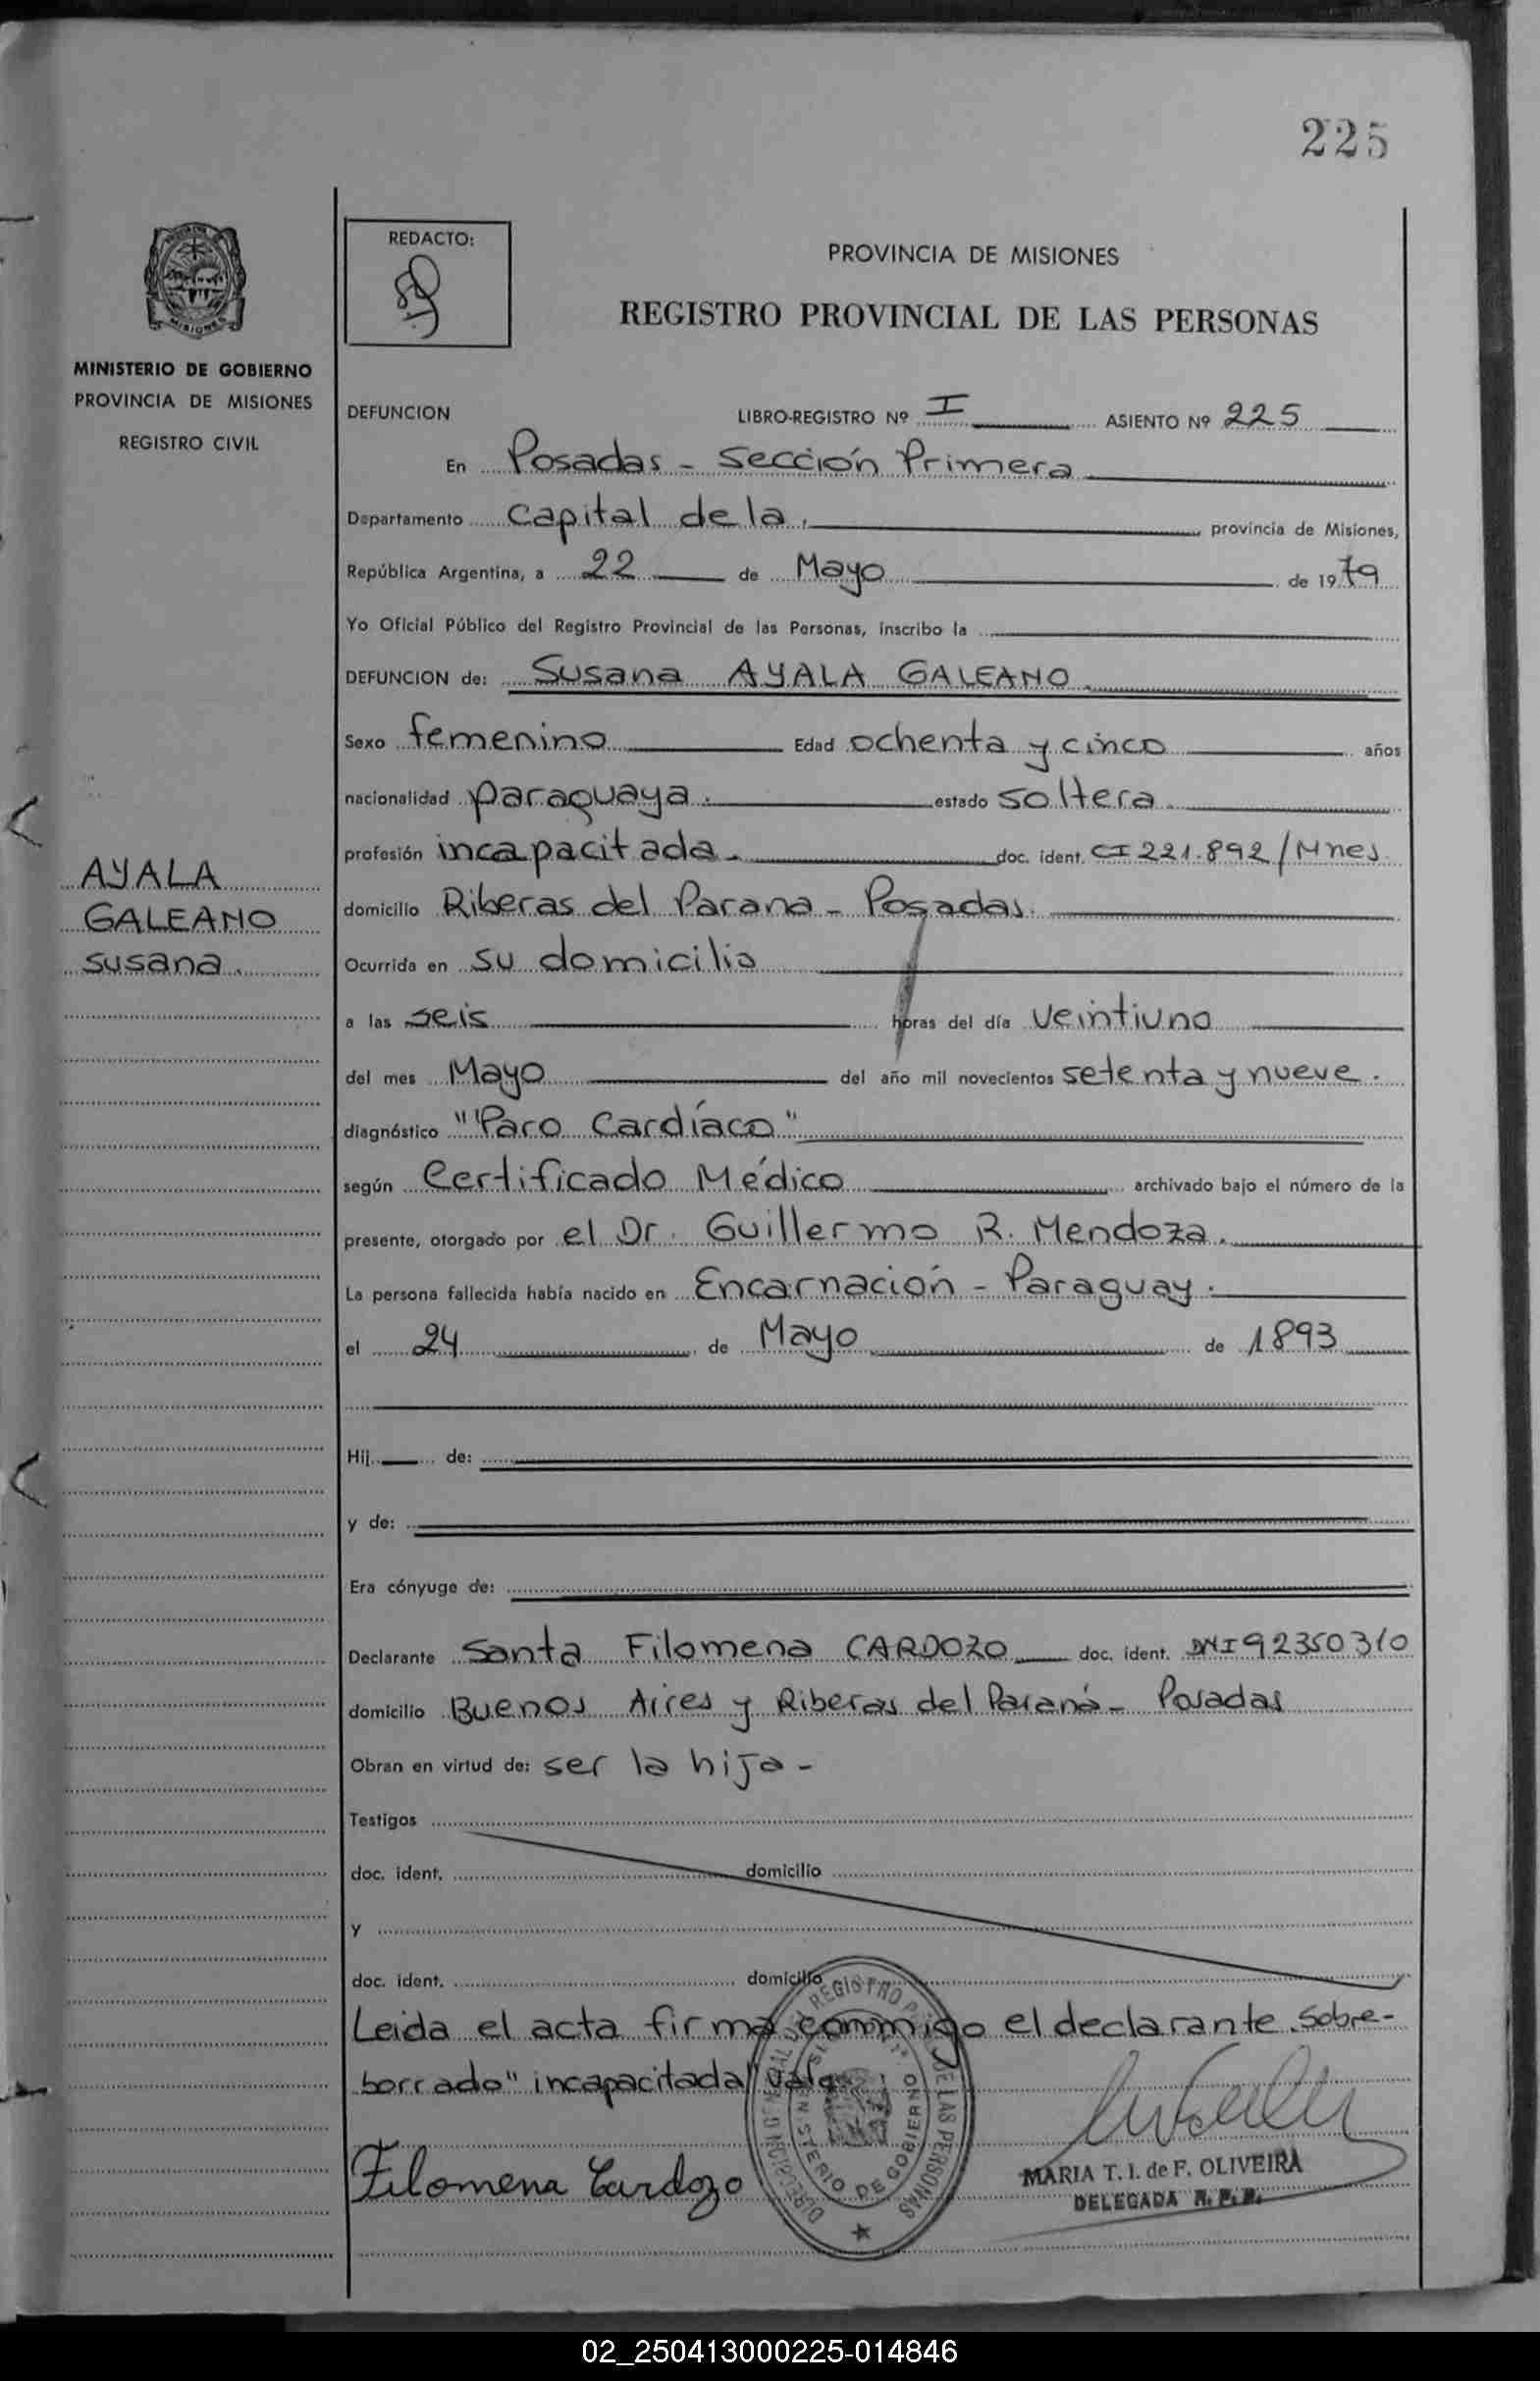 225
REDACTO:
PROVINCIA DE MISIONES
REGISTRO PROVINCIAL DE LAS PERSONAS
MISIONES
MINISTERIO DE GOBIERNO
PROVINCIA DE MISIONES
REGISTRO CIVIL
DEFUNCION LIBRO-REGISTRO Nº I ASIENTO Nº 225
En Posadas - Sección Primera
Departamento Capital de la. provincia de Misiones,
República Argentina, a 22 de Mayo de 1979
Yo Oficial Público del Registro Provincial de las Personas, inscribo la
DEFUNCION de: Susana AYALA GALEANO.
Sexo femenino Edad ochenta y cinco años
nacionalidad paraguaya. estado soltera.
profesión incapacitada. doc. ident. CI 221.892/Mnes.
AYALA
GALEANO
Susana.
domicilio Riberas del Parana - Posadas.
Ocurrida en su domicilio
a las seis horas del día veintiuno
del mes Mayo del año mil novecientos setenta y nueve.
diagnóstico "Paro Cardíaco"
según Certificado Médico archivado bajo el número de la
presente, otorgado por el Dr. Guillermo R. Mendoza.
La persona fallecida había nacido en Encarnación - Paraguay.
el 24 de Mayo de 1893
Hij de:
y de:
Era cónyuge de:
Declarante Santa Filomena CARDOZO doc. ident. DNI 92350310
domicilio Buenos Aires y Riberas del Paraná - Posadas
Obran en virtud de: ser la hija -
Testigos
doc. ident. domicilio
y
doc. ident. domicilio
Leida el acta firma conmigo el declarante. Sobre-
borrado "incapacitada" Vale.
Filomena Cardozo
MARIA T. I. de F. OLIVEIRA
DELEGADA R. P. P.
DIRECCION GENERAL DEL REGISTRO P. DE LAS PERSONAS
MINISTERIO DE GOBIERNO
02_250413000225-014846